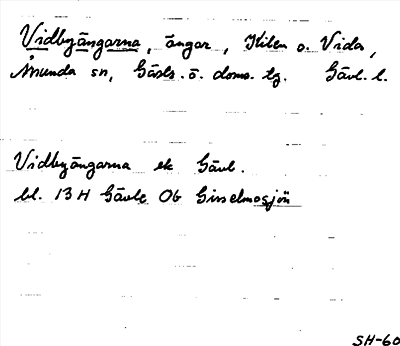 Vidbyängarna, ängar, Kilen o. Vida,
Åmunda sn, Gästr. ö. doms. tg. Gävl. l.
Vidbyängarna ek Gävl.
bl. 13 H Gävle Ob Ginselmosjön
SH-60